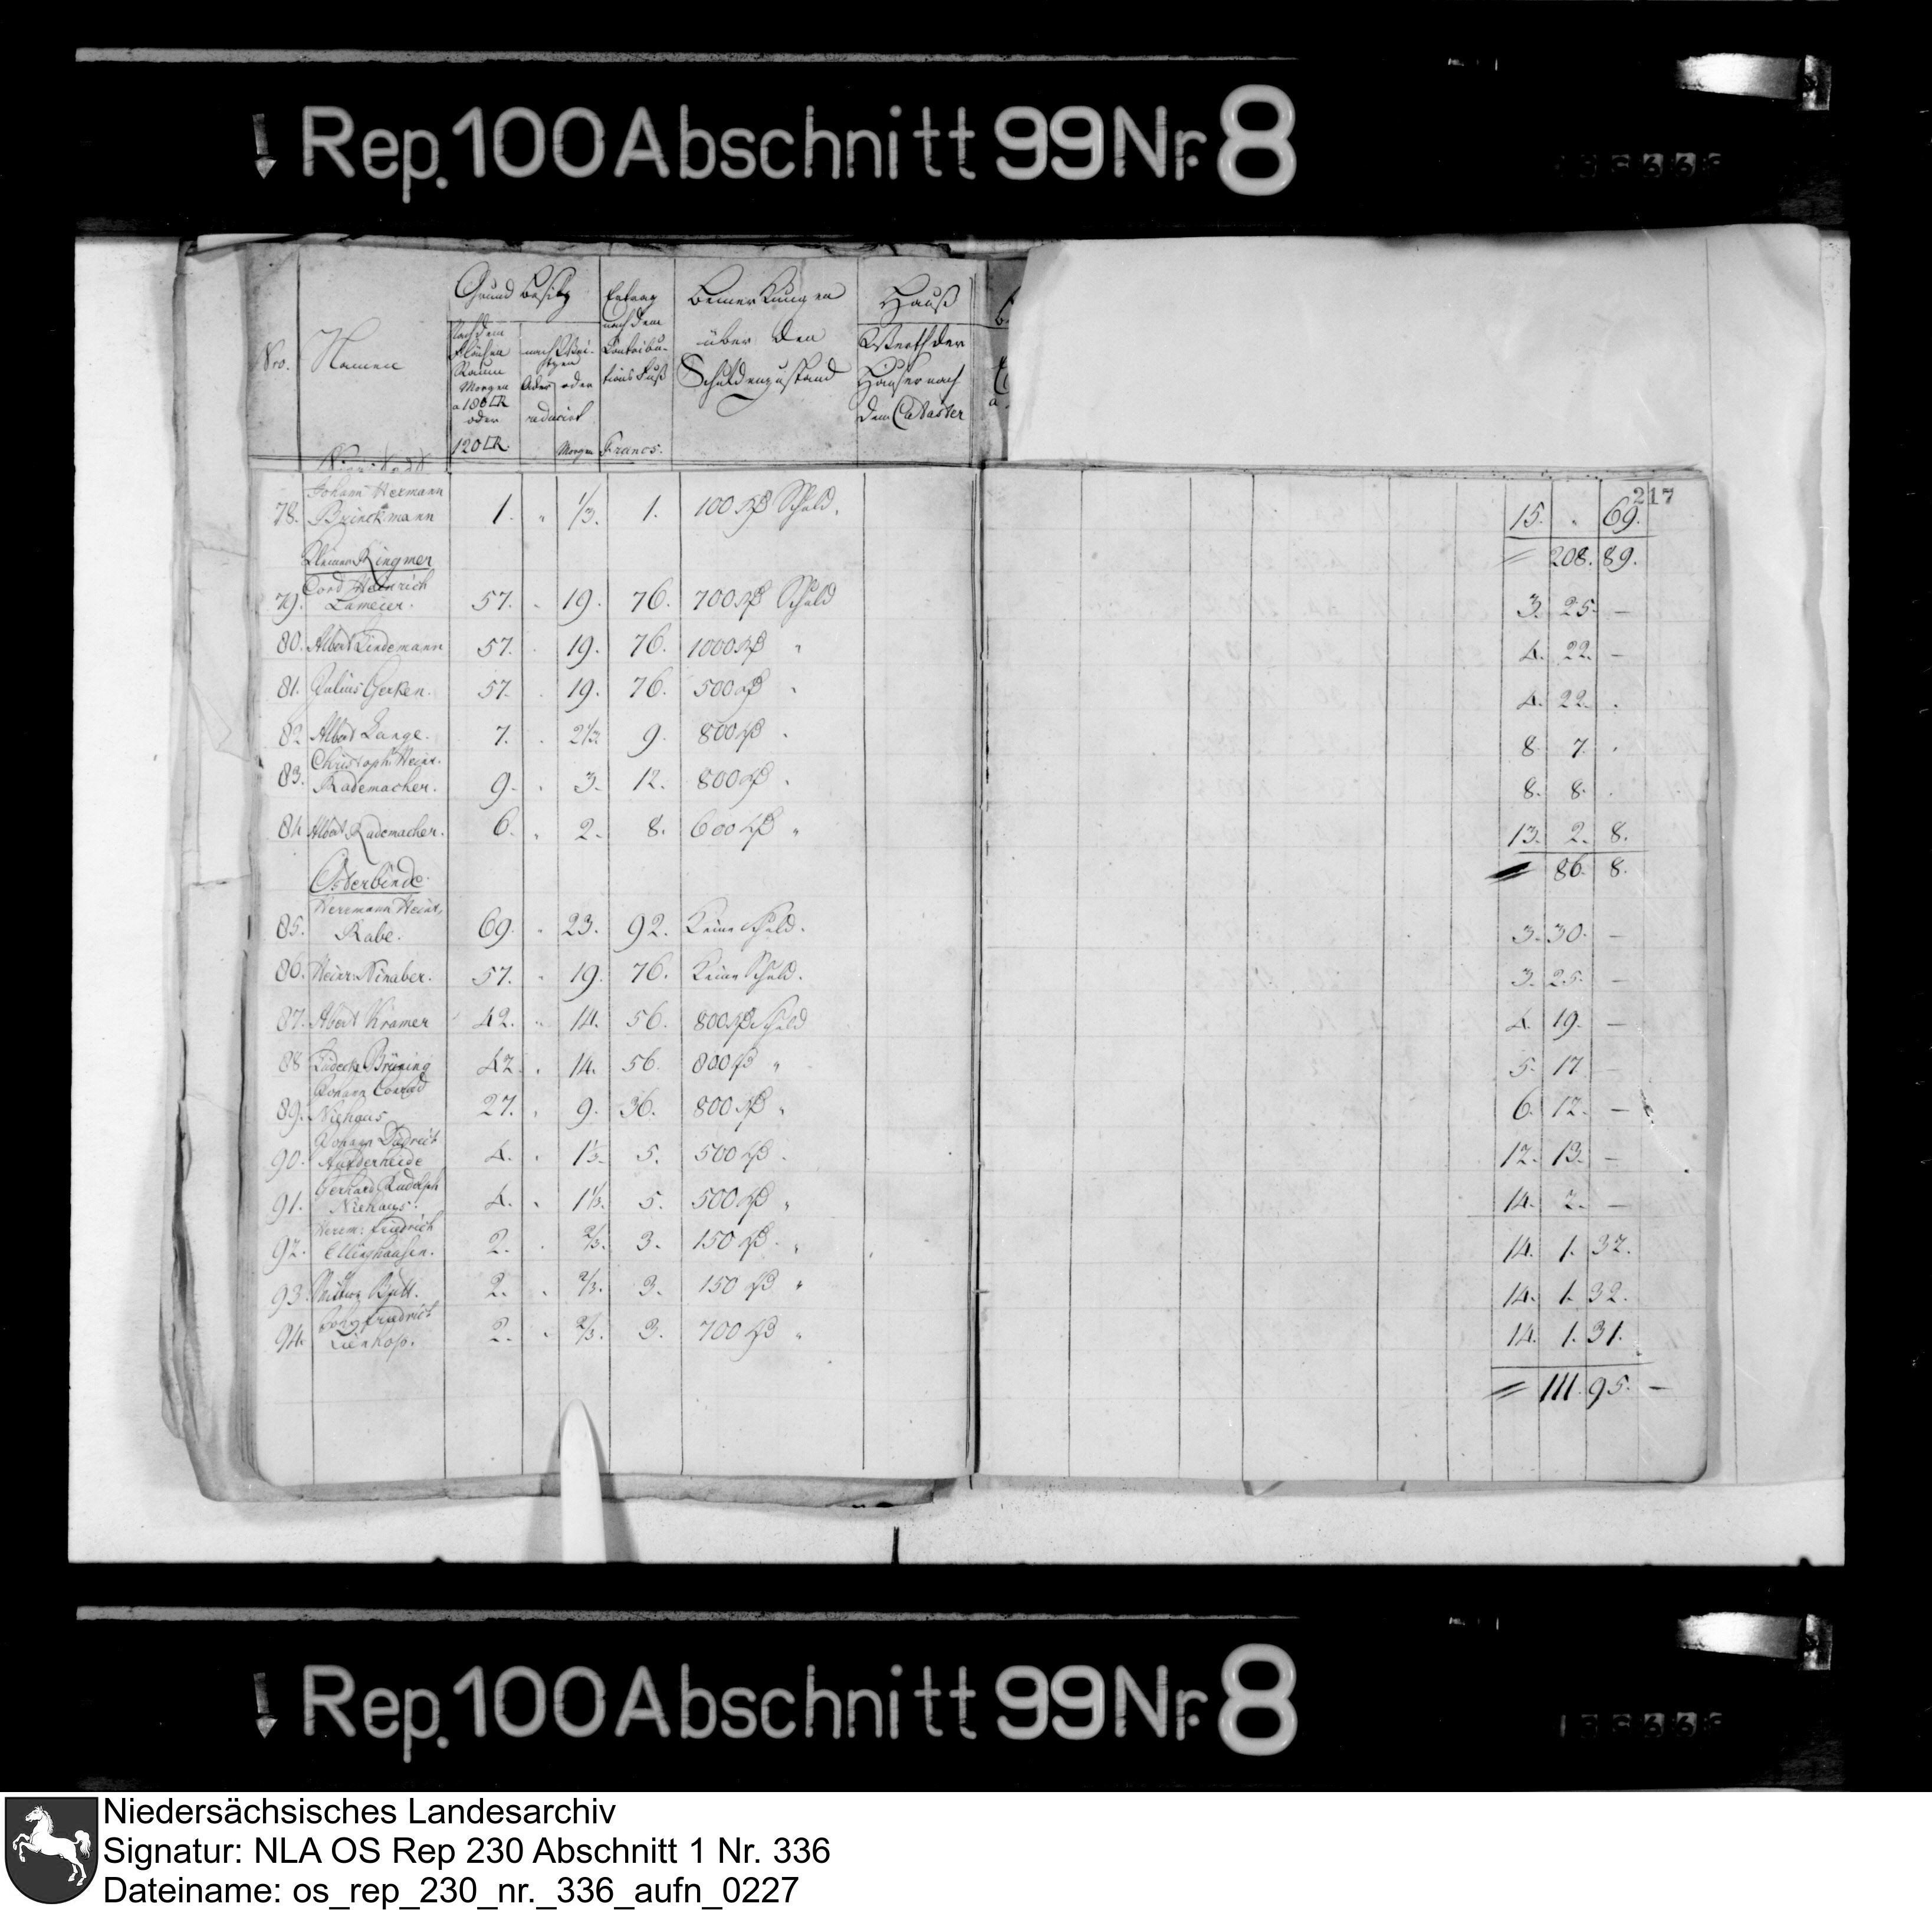 ↓ Rep. 100 Abschnitt 99 Nr. 8
Nro. Namen Grund besitz Ertrag nach dem Contribu- tions Fuß Bemerkungen über den Schuldenzustand Hauß
Nach dem Flächen Raum Morgen a 180 □R oder 120 □R. reducirt Morgen Francs. Werth der Häuser nach dem Cataster
217
Johann Hermann
78. Brinckmann 1. " 1/3. 1. 100 Rß Schuld. 15. " 69.
208. 89.
Ringmer
Cord Heinrich
79. Lameier. 57. " 19. 76. 700 Rß Schuld 3. 25. —
80. Albert Lindemann 57. " 19. 76. 1000 Rß " 4. 22. —
81. Julius Gerken. 57. " 19. 76. 500 Rß " 4. 22. "
82 Albert Lange. 7. " 2 1/3. 9. 800 Rß " 8. 7. "
Christoph Heinr.
83. Rademacher. 9. " 3. 12. 800 Rß " 8. 8. "
84 Albert Rademacher. 6. " 2. 8. 600 Rß " 13. 2. 8.
86. 8.
Osterbinde.
Herrmann Heinr.
85. Rabe. 69. " 23. 92. Keine Schuld. 3. 30. —
86. Heinr. Ninaber. 57. " 19. 76. Keine Schuld. 3. 25. —
87. Albert Kramer 42. " 14. 56. 800 Rß Schuld 4. 19. —
88 Lüdecke Brüning 42. " 14. 56. 800 Rß " 5. 17 —
Johann Conrad
89. Niehaus 27. " 9. 36. 800 Rß " 6. 12. —
Johann Didrich
90. Aufderheide 4. " 1 1/3. 5. 500 Rß " 12. 13. —
Gerhard Rudolph
91. Niehaus. 4. " 1 1/3. 5. 500 Rß " 14. 2. —
Herm: Friedrich
92. Ellinghausen. 2. " 2/3. 3. 150 Rß " 14. 1. 32.
93. Wittwe Butt. 2. " 2/3. 3. 150 Rß " 14. 1. 32.
Joh. Friedrich
94. Lienhop. 2. " 2/3. 3. 700 Rß " 14. 1. 31.
111. 95. —
↓ Rep. 100 Abschnitt 99 Nr. 8
Niedersächsisches Landesarchiv
Signatur: NLA OS Rep 230 Abschnitt 1 Nr. 336
Dateiname: os_rep_230_nr._336_aufn_0227